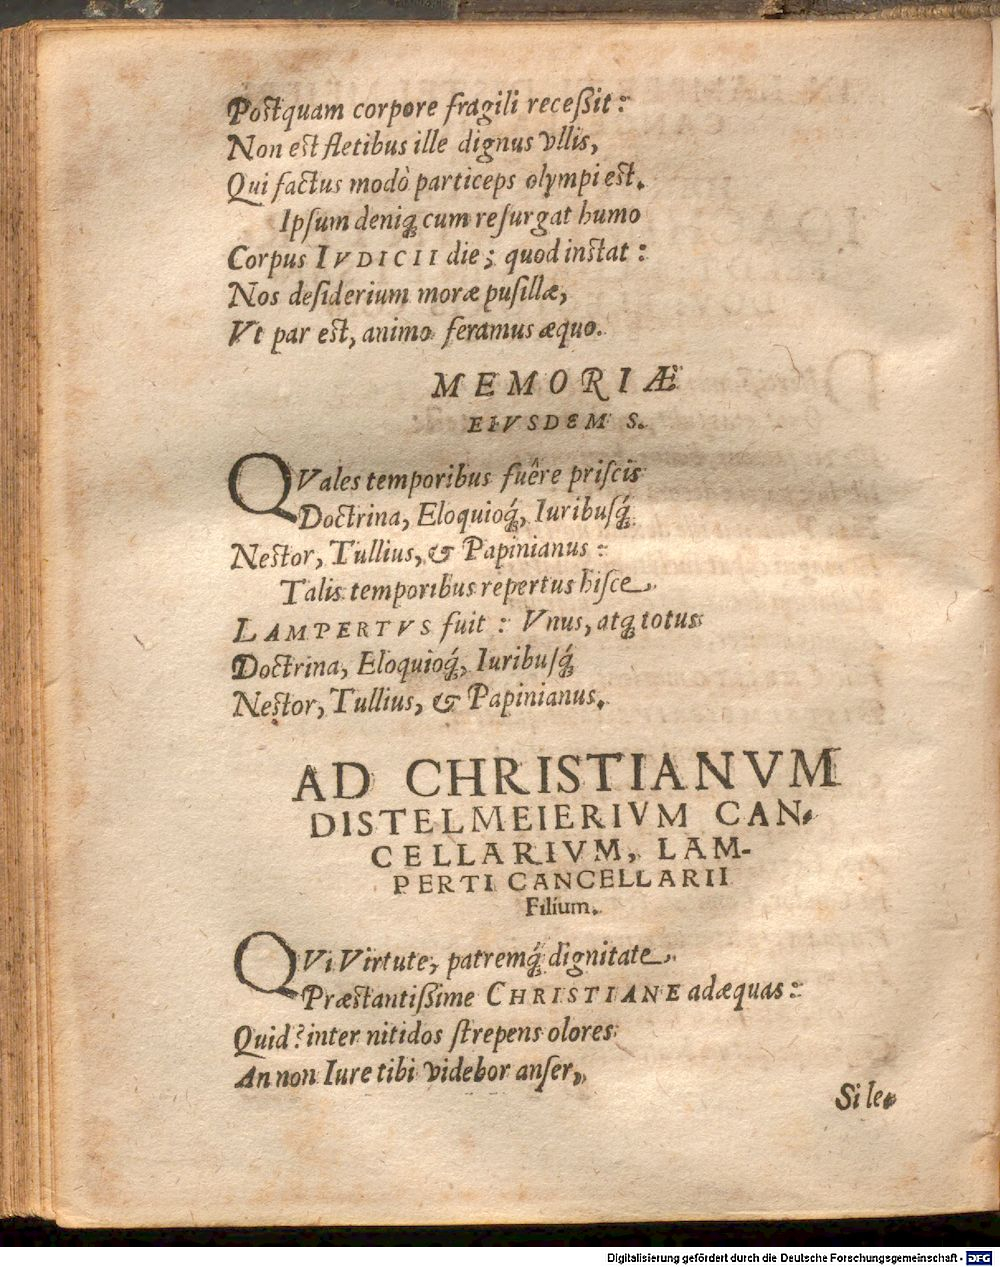 Postquam corpore fragili receßit:
Non est fletibus ille dignus vllis,
Qui factus modò particeps olympi est.
Ipſum deniq́ cum reſurgat humo
Corpus IVDICII die; quod instat:
Nos deſiderium moræ puſillæ,
Vt par est, animo feramus æquo.
MEMORIÆ
EIVSDEM S.
QVales temporibus fuêre priſcis
Doctrina, Eloquioq́, Iuribuſq́
Nestor, Tullius, & Papinianus:
Talis temporibus repertus hiſce,
LAMPERTVS fuit: Vnus, atq́ totus
Doctrina, Eloquioq́, Iuribuſq́
Nestor, Tullius, & Papinianus.
AD CHRISTIANVM
DISTELMEIERIVM CAN-
CELLARIVM, LAM-
PERTI CANCELLARII
Filium.
QVi Virtute, patremq́ dignitate,
Præstantißime CHRISTIANE adæquas:
Quid? inter nitidos ſtrepens olores
An non Iure tibi videbor anſer,
Si le-
Digitalisierung gefördert durch die Deutsche Forschungsgemeinschaft - DFG